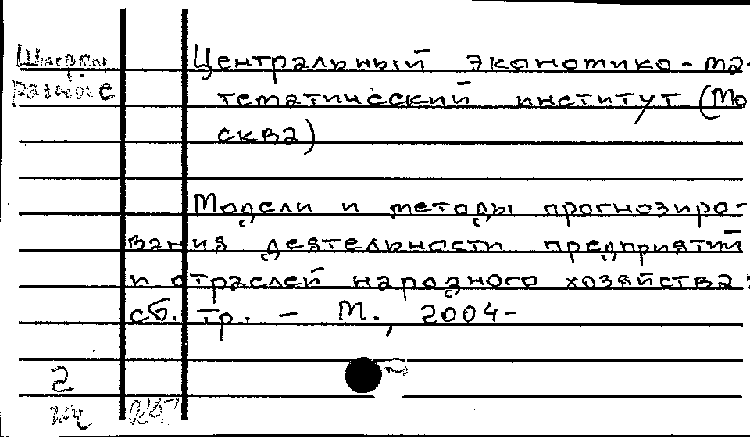 Шифры
разные
Центральный экономико-ма-
тематический институт (Мо
сква)
Модели и методы прогнозиро-
вания деятельности предприятий
и отраслей народного хозяйства:
сб. тр. - М., 2004-
2